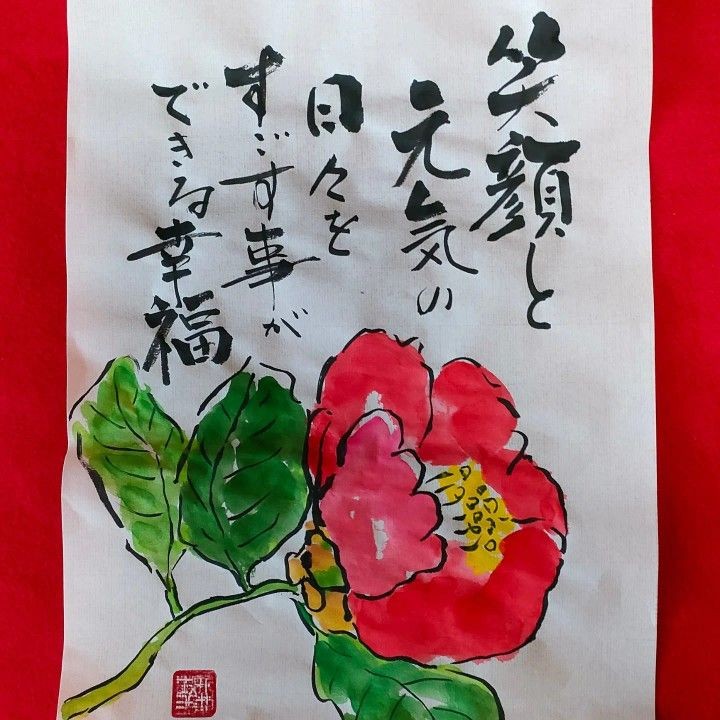 笑顔と
元気の
日々を
すごす事が
できる幸福